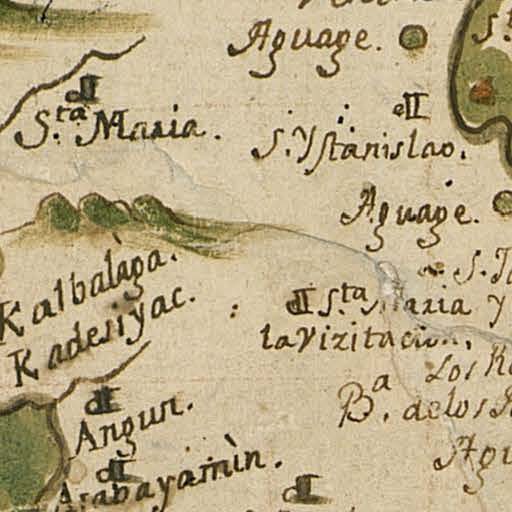 Aguage.
S.ta Maria.
S. Ystanislao.
Aguage.
Kalbalàga.
Kadesiyac.
S.ta Maria y
la Vizitacion.
Los
B.a de los
Angun.
Asabayamìn.